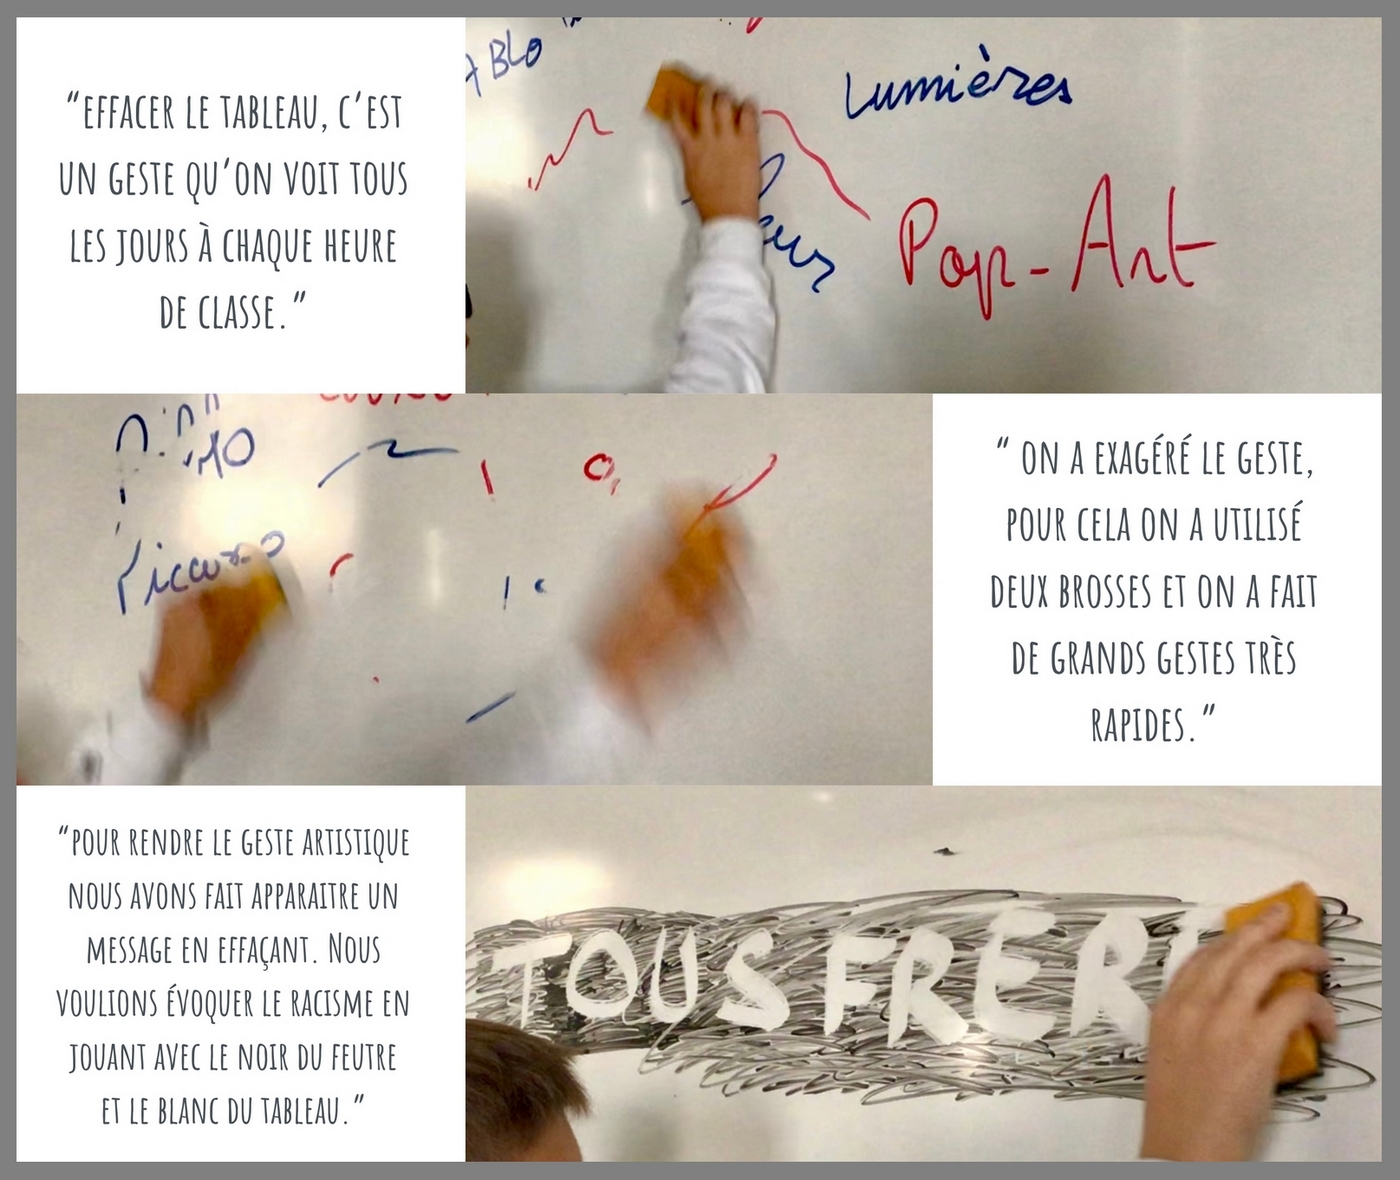 “EFFACER LE TABLEAU, C’EST
UN GESTE QU’ON VOIT TOUS
LES JOURS À CHAQUE HEURE
DE CLASSE.”
BLO
Lumières
Pop-Art
“ ON A EXAGÉRÉ LE GESTE,
POUR CELA ON A UTILISÉ
DEUX BROSSES ET ON A FAIT
DE GRANDS GESTES TRÈS
RAPIDES.”
“POUR RENDRE LE GESTE ARTISTIQUE
NOUS AVONS FAIT APPARAITRE UN
MESSAGE EN EFFAÇANT. NOUS
VOULIONS ÉVOQUER LE RACISME EN
JOUANT AVEC LE NOIR DU FEUTRE
ET LE BLANC DU TABLEAU.”
TOUS FRÈRE